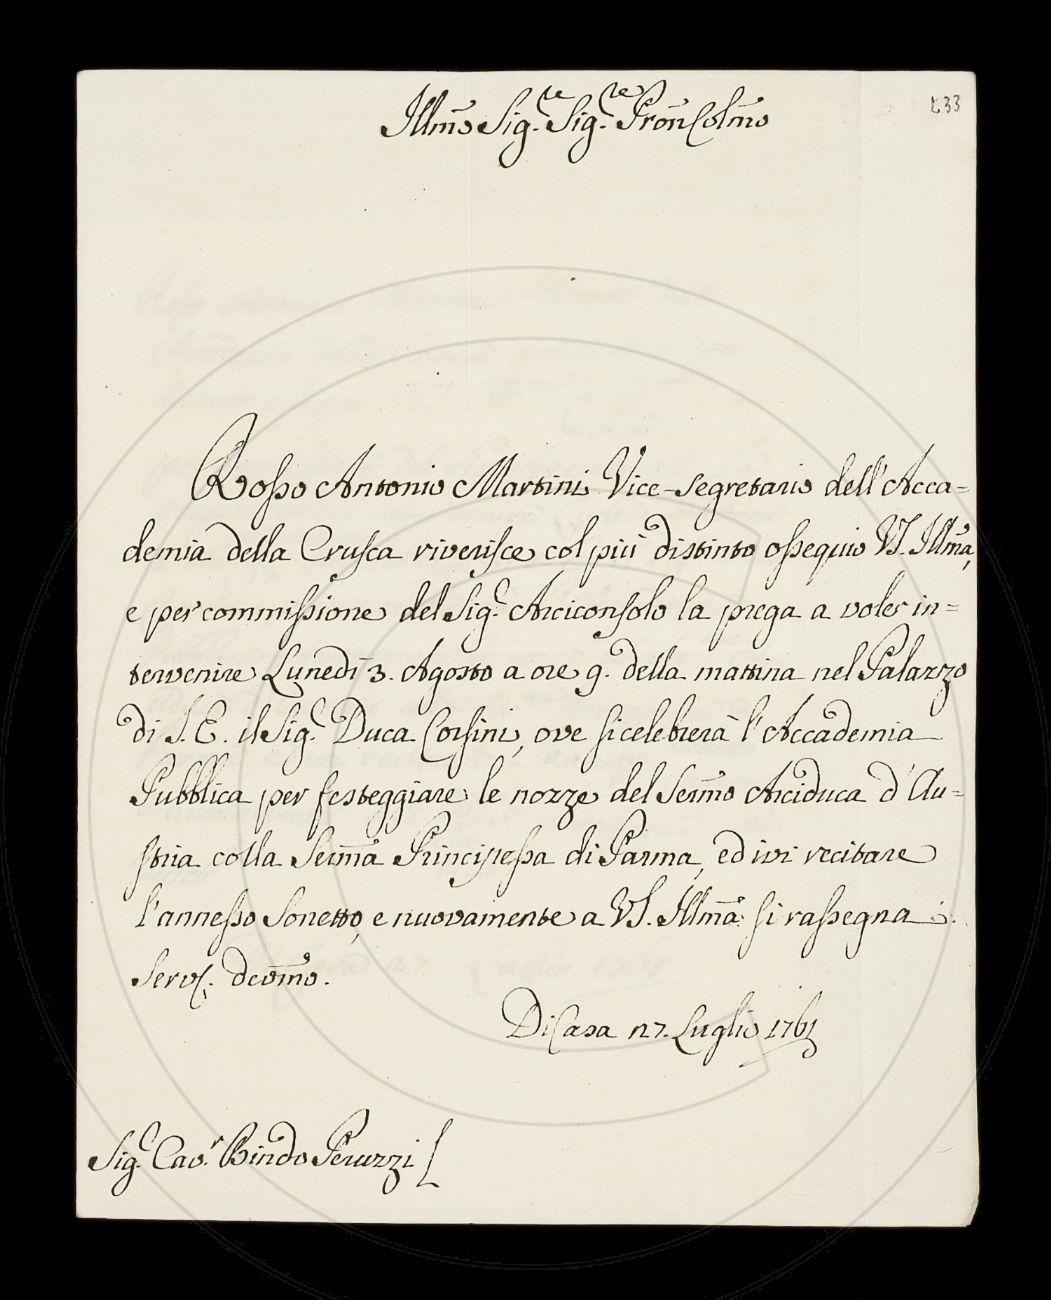 133
Ill̃mo Sig.re Sig.re Prõn Col̃mo
Rosso Antonio Martini Vice-segretario dell'Acca=
demia della Crusca riverisce col più distinto ossequio VS. Ill̃ma,
e per commissione del Sig.r Arciconsolo la prega a voler in=
tervenire Lunedì 3. Agosto a ore 9. della mattina nel Palazzo
di S. E. il Sig.r Duca Corsini, ove si celebrerà l'Accademia
Pubblica per festeggiare le nozze del Ser̃mo Arciduca d'Au=
stria colla Ser̃ma Principessa di Parma, ed ivi recitare
l'annesso Sonetto, e nuovamente a VS. Ill̃ma si rassegna
Serv. devõmo.
Di Casa 27. Luglio 1761
Sig.r Cav.r Bindo Peruzzi